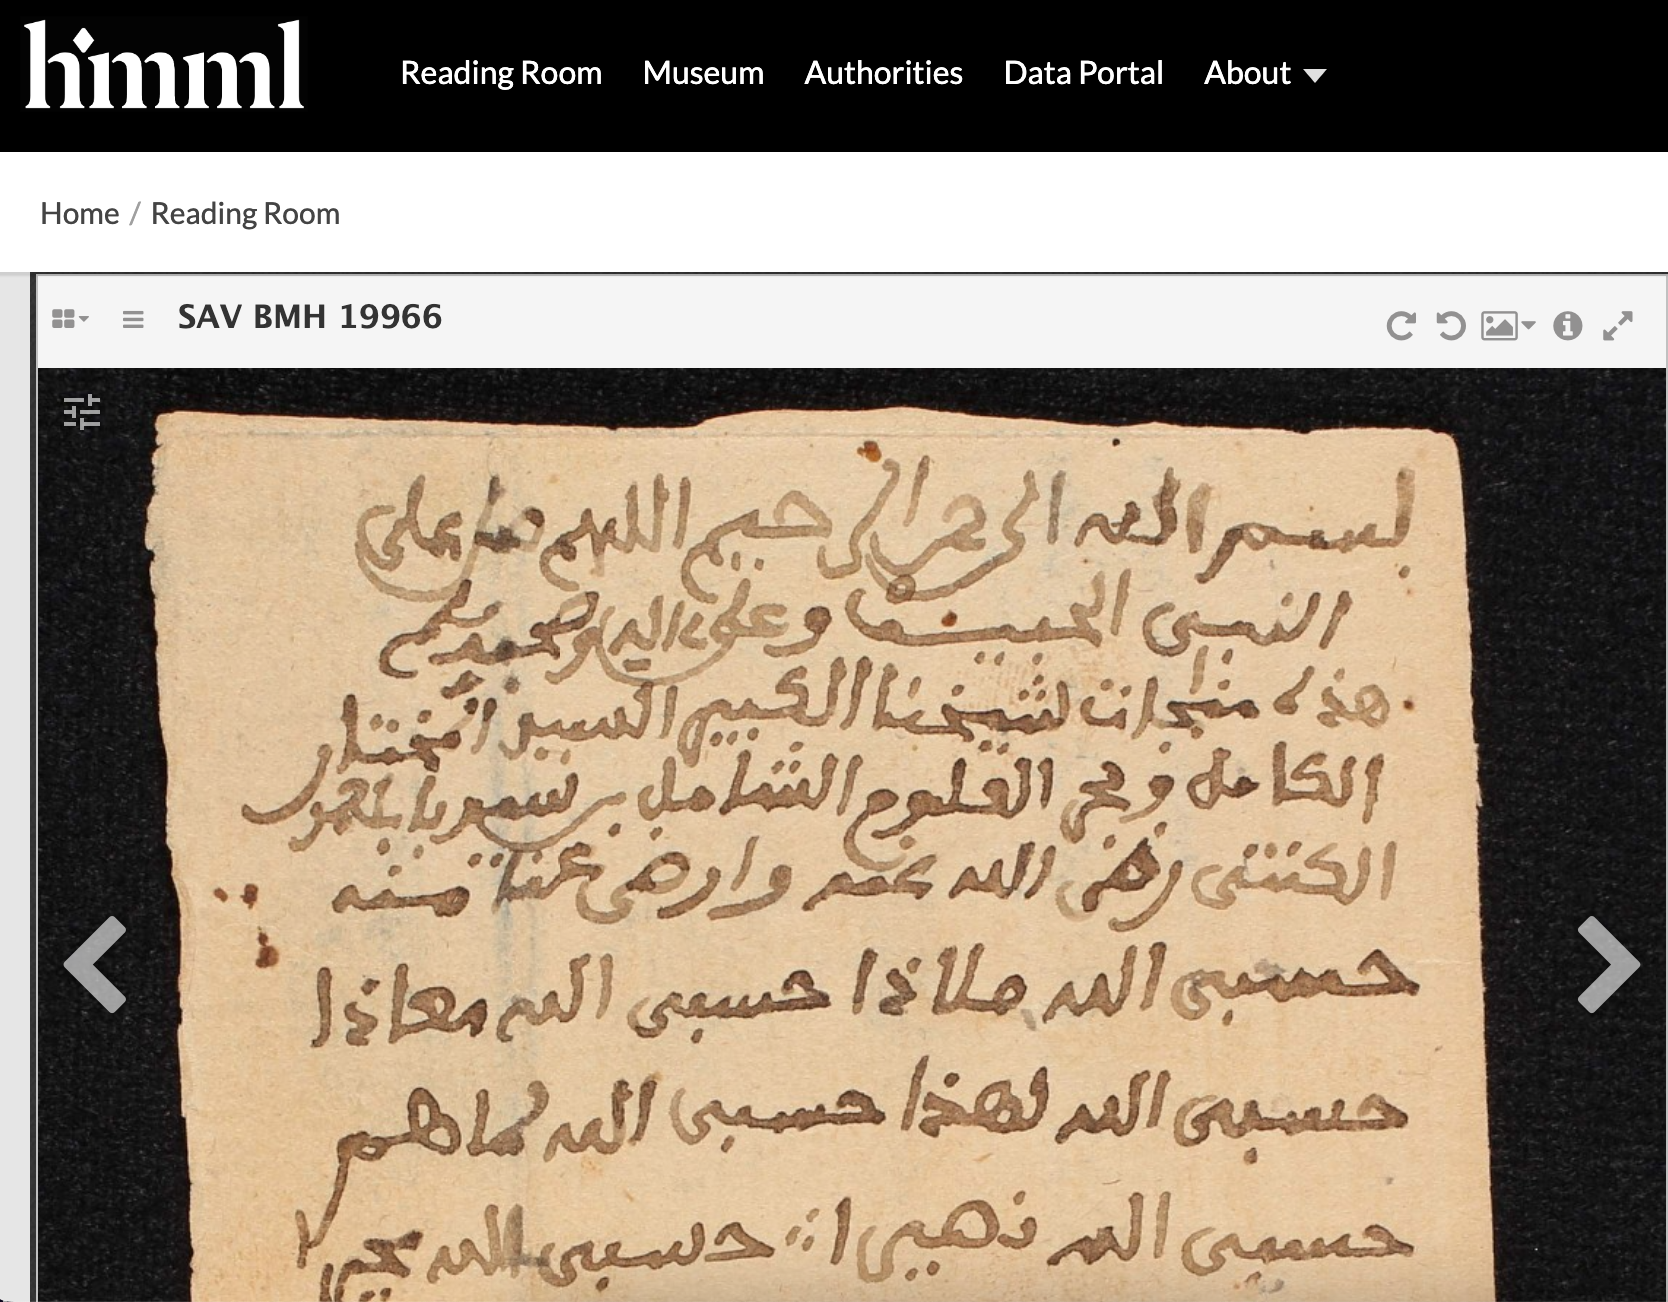 hmml
Reading Room Museum Authorities Data Portal About
Home / Reading Room
SAV BMH 19966
بسم الله الرحمن الرحيم اللهم صل على
النبي الحبيب وعلى ءاله وصحبه
هذه منجات لشيخنا الكبير السيد المختار
الكامل وفي العلوم الشامل بن سيد
الكنتي رضي الله عنه وارض عنا منه
حسبي الله ملاذا حسبي الله معاذا
حسبي الله لهذا حسبي الله
حسبي الله حسبي الله